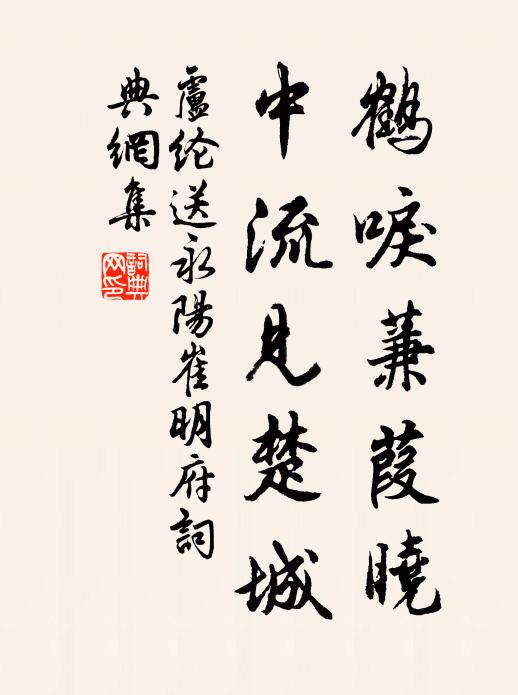 鶴唳蒹葭曉
中流見楚城
盧纶送永陽崔明府詞
典網集
詞典網印